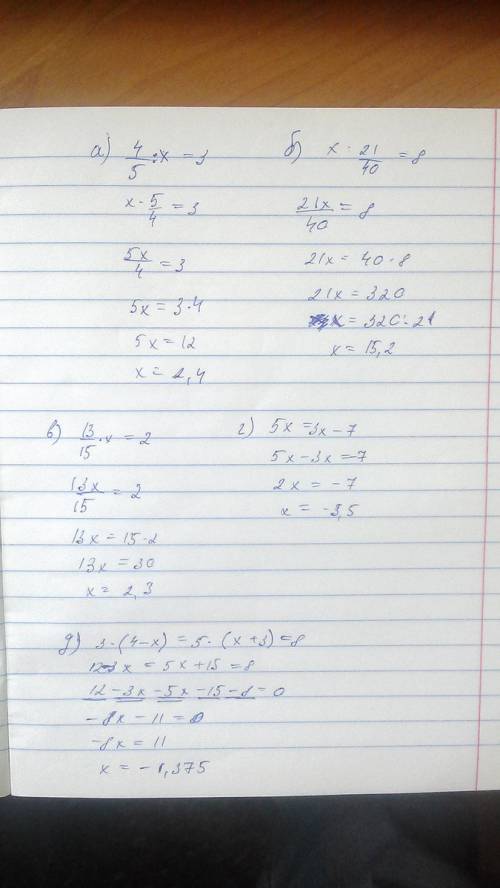 а) 4/5 : x = 3
x · 5/4 = 3
5x/4 = 3
5x = 3·4
5x = 12
x = 2,4
б) x : 21/40 = 8
21x/40 = 8
21x = 40·8
21x = 320
x = 320:21
x = 15,2
в) 13/15 · x = 2
13x/15 = 2
13x = 15·2
13x = 30
x = 2,3
г) 5x = 3x - 7
5x - 3x = -7
2x = -7
x = -3,5
д) 3·(4-x) = 5·(x+3) = 8
12-3x = 5x+15 = 8
12-3x-5x-15-8 = 0
-8x - 11 = 0
-8x = 11
x = -1,375